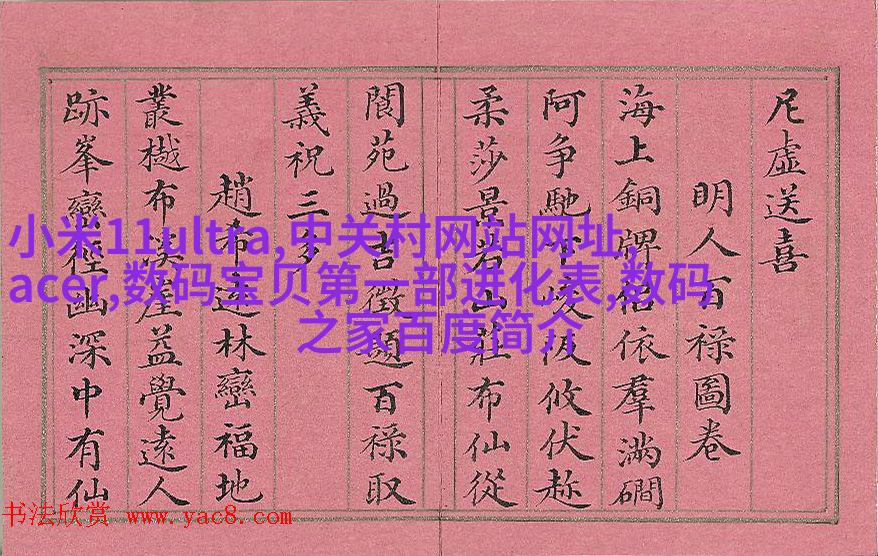 尼虛送喜
明人百祿圖卷
海上銅牌依羣滿磵
阿爭馳攸伏
柔莎景若山莊布仙從
閬苑過吉徵題百祿取
義祝三多
趙布逵林巒福地
叢樾布溪崖益覺遠人
跡峯巒徑幽深中有仙
小米11ultra,中关村网站网址,
acer,数码宝贝第一部进化表,数码
之家百度简介
书法欣赏 www.yac8.com